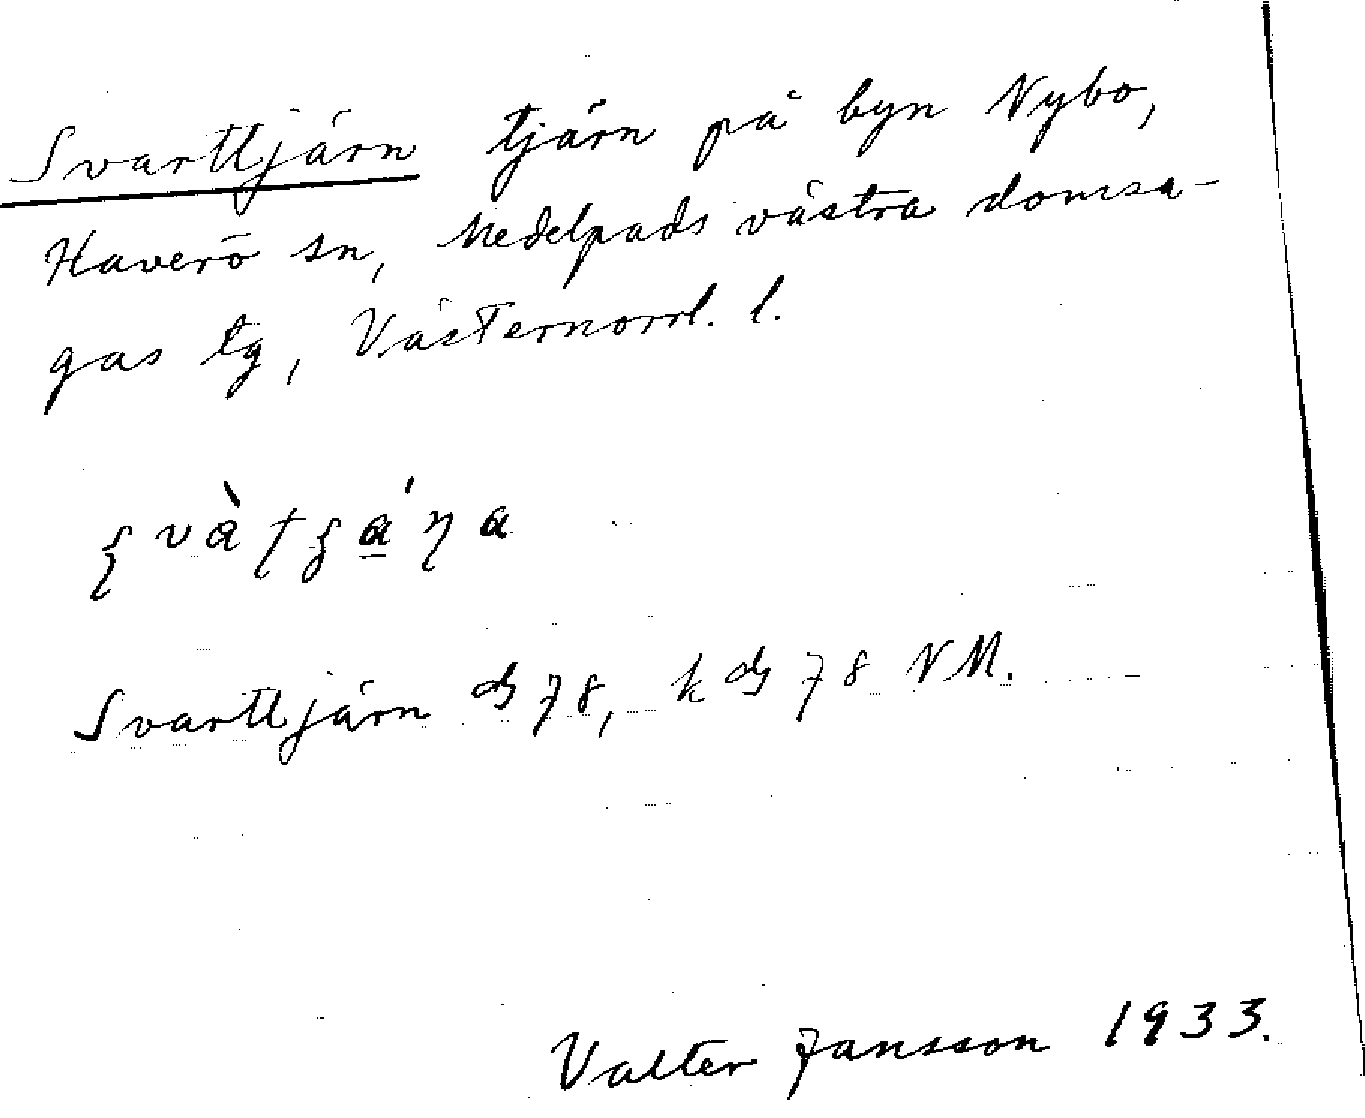 Svarttjärn tjärn på byn Nybo,
Haverö sn, Medelpads västra domsa-
gas tg, Västernorrl. l.
Svarttjärn 78, k 78 NM.
Valter Jansson 1933.